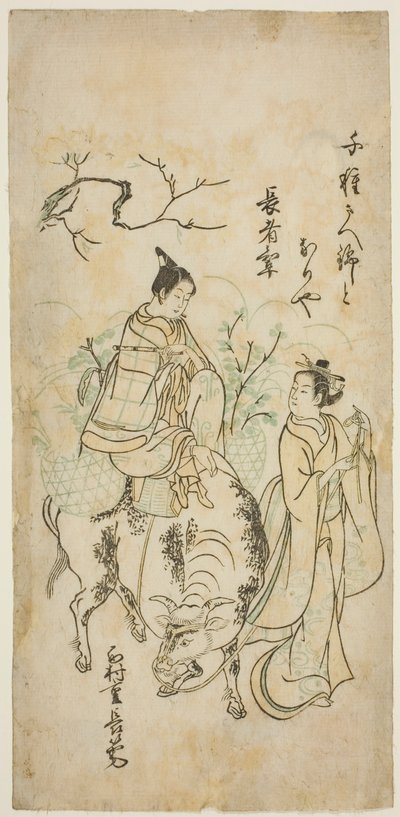 千種さへ錦と
なりや
長者
西村重長筆